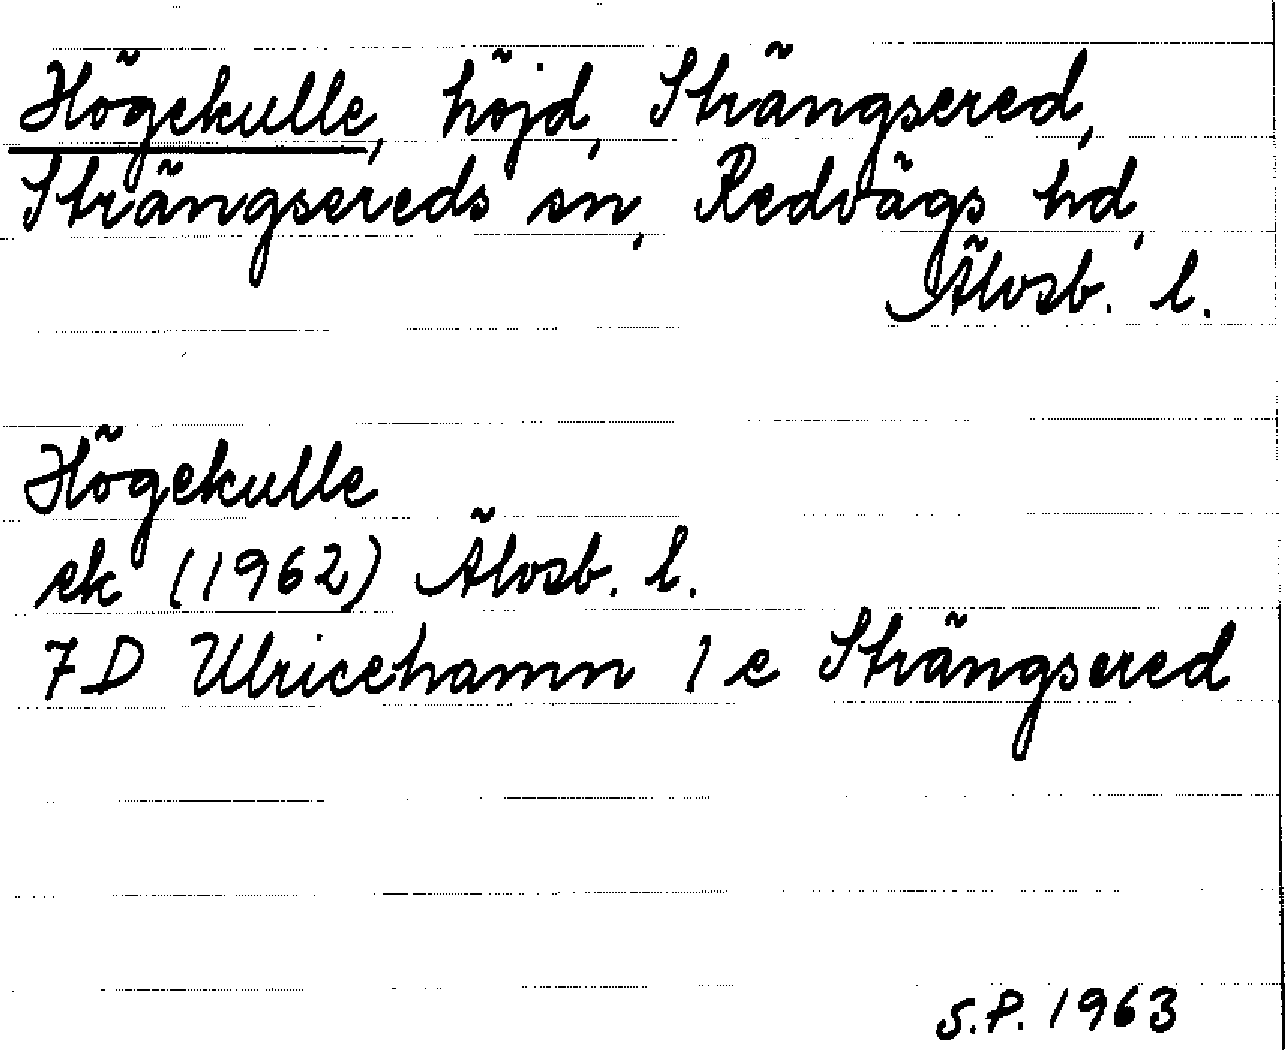 Högekulle, höjd, Strängsered,
Strängsereds sn, Redvägs hd,
Älvsb. l.
Högekulle
ek (1962) Älvsb. l.
7D Ulricehamn 1 e Strängsered
S.P. 1963